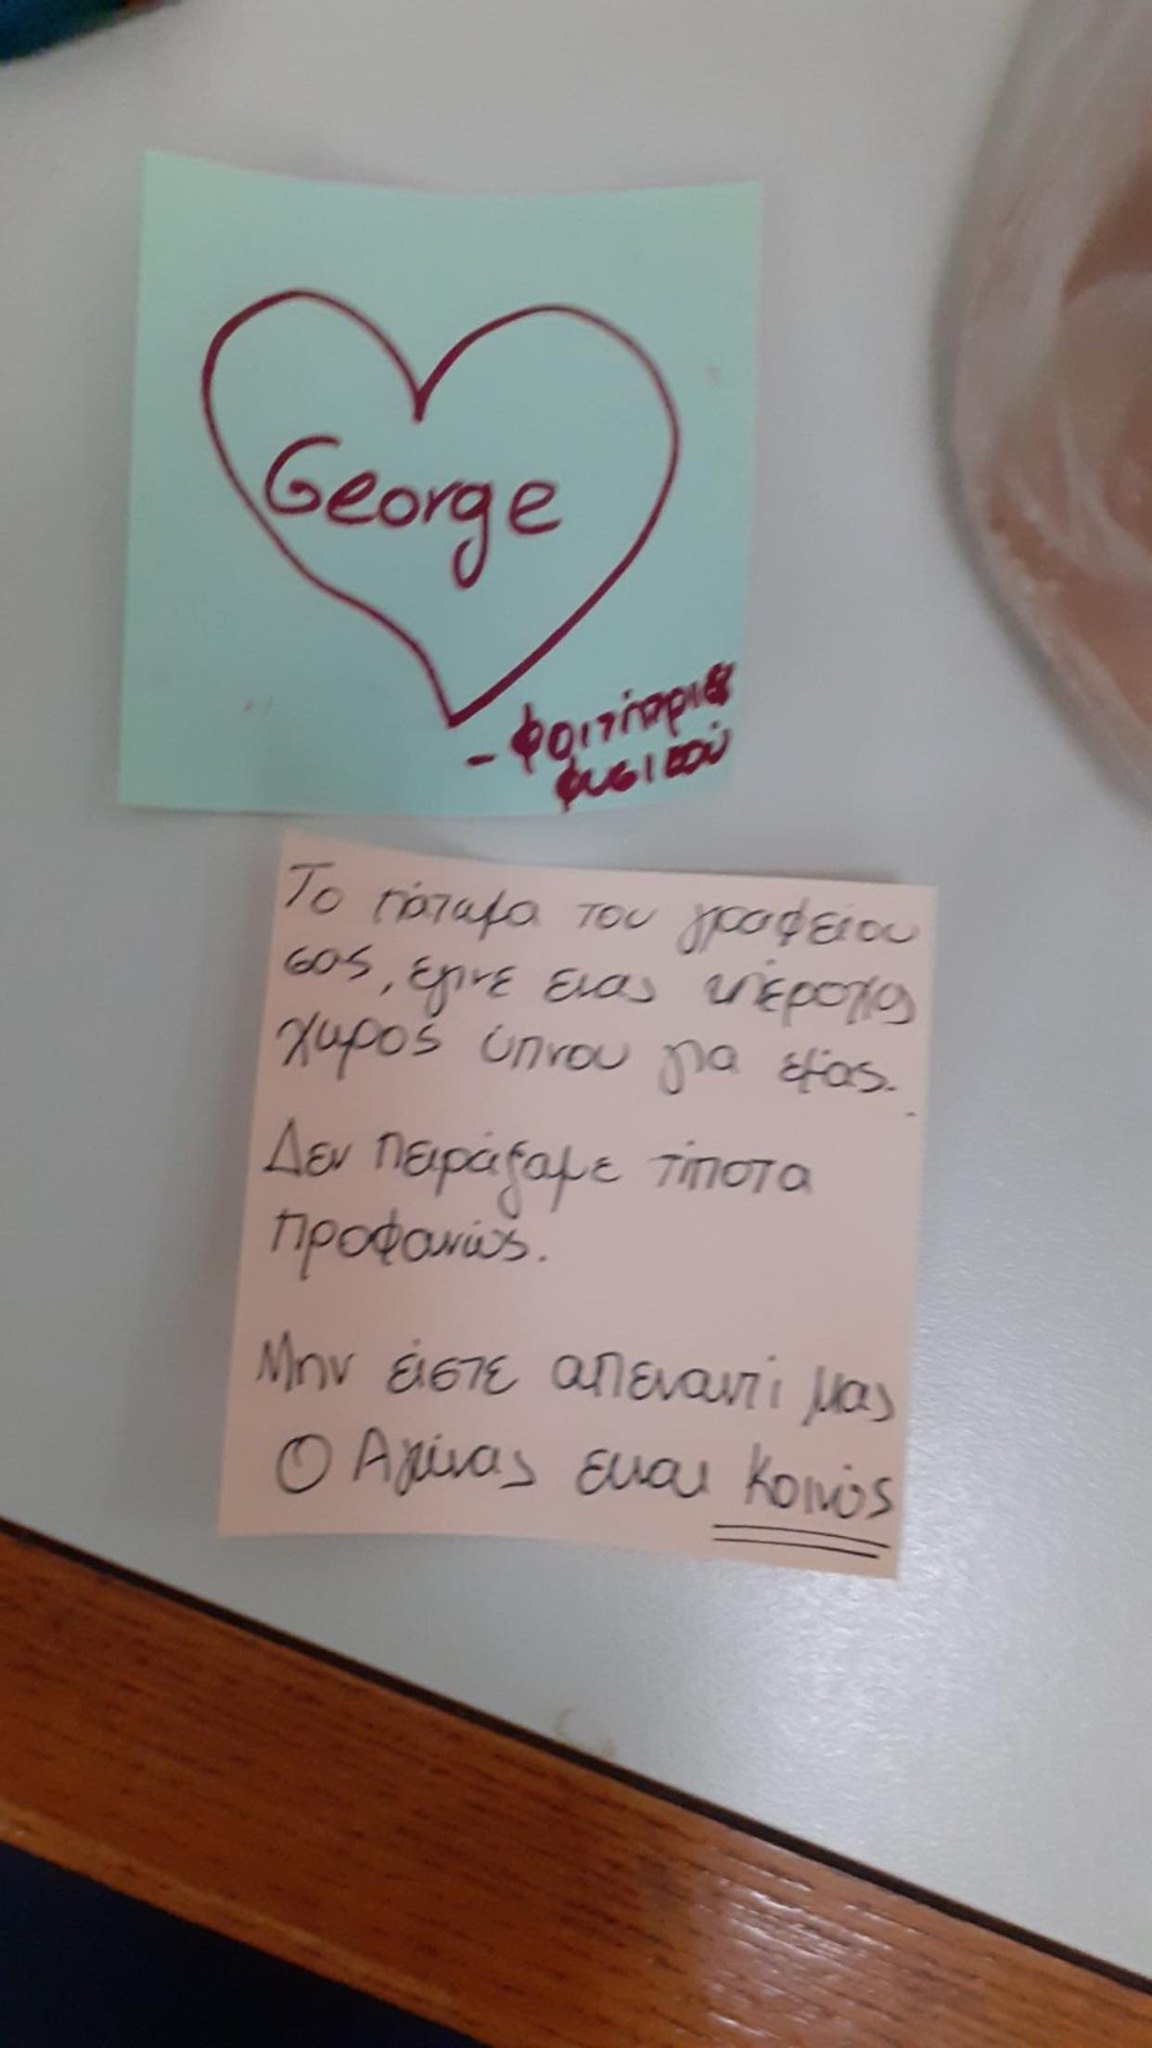 George
- Φοιτήτριες
Φυσικού
Το πάτωμα του γραφείου
σας, έγινε ένας υπέροχος
χώρος ύπνου για εμάς.
Δεν πειράξαμε τίποτα
προφανώς.
Μην είστε απέναντί μας
Ο Αγώνας είναι Κοινός